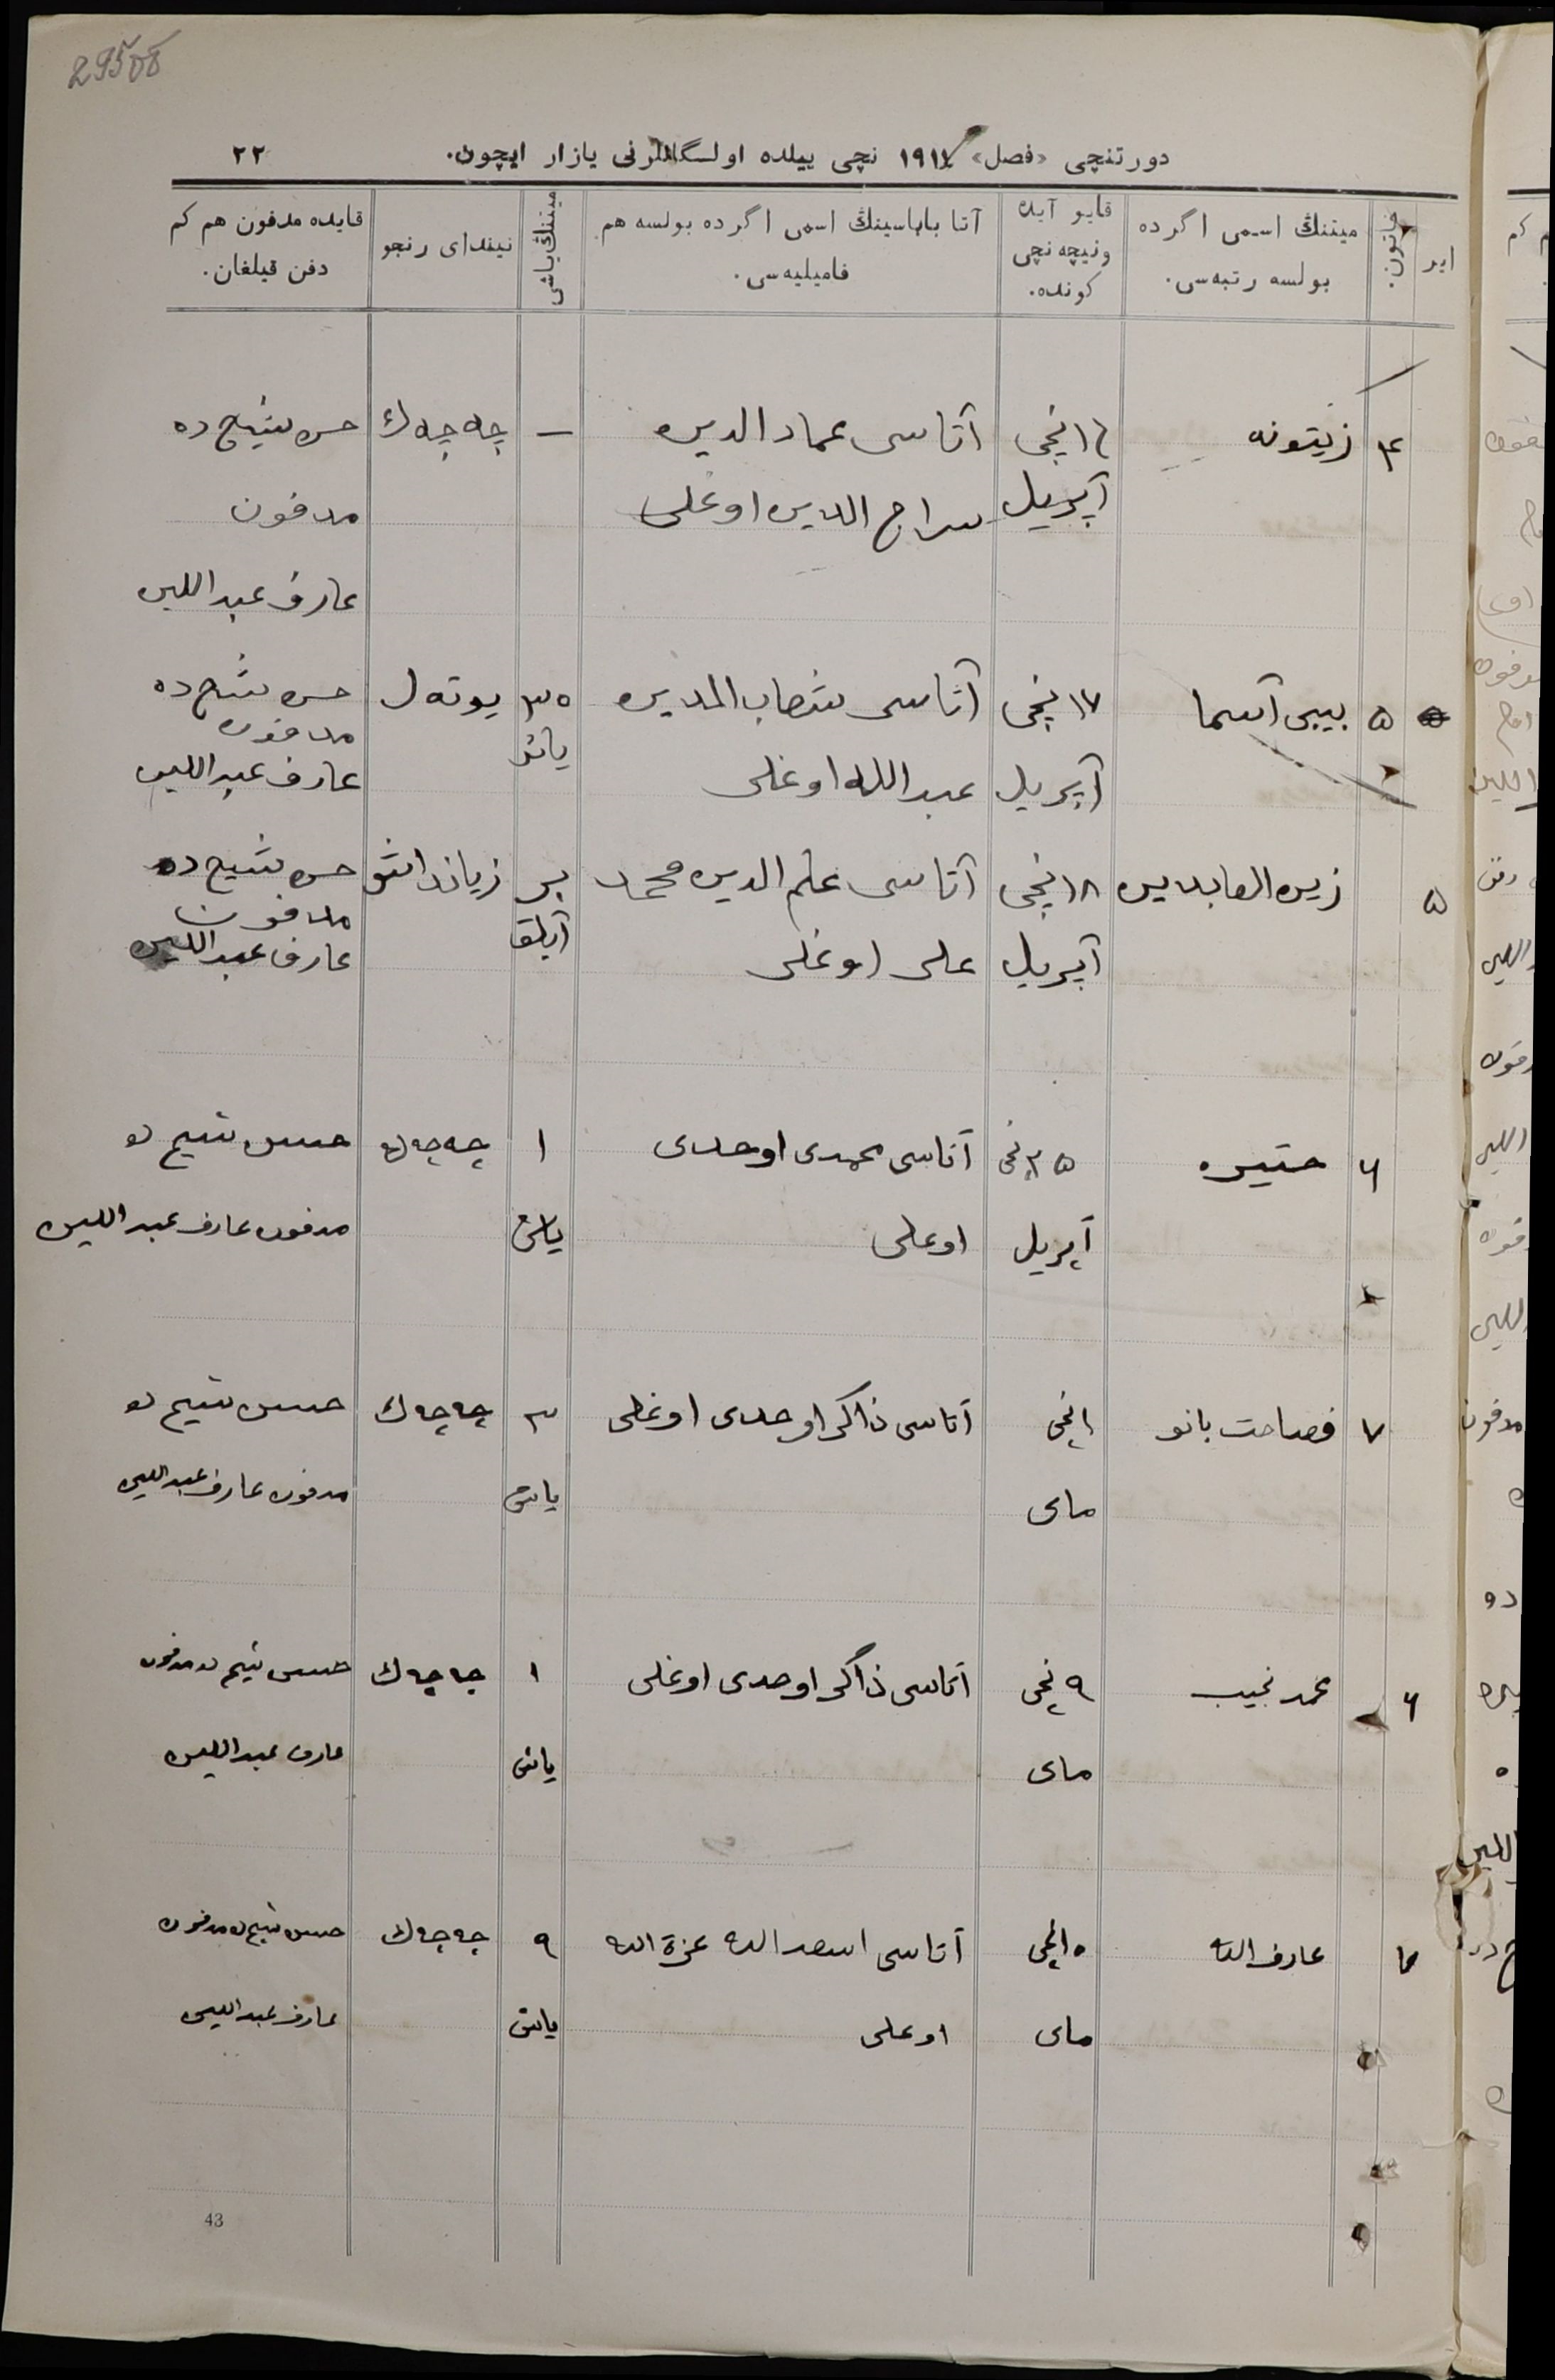 29508
دورتنچی «فصل» ۱۹۱۷ نچی ییلده اولسگانلرنی یازار ایچون. ۲۲
ایر
خاتون.
میتنڭ اسمی اگرده بولسه رتبه‌سی.
قایو آیده ونیچه نچی كونده.
آتا باباسینڭ اسمی اگرده بولسه هم فامیلیه‌سی.
میتنڭ یاشی
نیندای رنجو
قایده مدفون هم كم دفن قیلغان.
۴ زیتونه نچی آتاسی عمادالدین — چه چه ك حسن شیخ ده
آپریل سراج الدین اوغلی مدفون
عارف عبداللین
۵ بیبی آسما ۱۷ نچی آتاسی شهاب الدین ۳۵ یوته ل حسن شیخ ده
یاش مدفون
آپریل عبدالله اوغلی عارف عبداللین
۵ زین العابدین ۱۸ نچی آتاسی علم الدین محمد بر زیانداش حسن شیخ ده
آیلق مدفون
آپریل علی اوغلی عارف عبداللین
۶ ۲۵ نچی آتاسی محمدی اوحدی ۱ چه چه ك حسن شیخ ده
آپریل اوغلی یاش مدفون عارف عبداللین
۷ فصاحت بانو ۱ نچی آتاسی ذاكر اوحدی اوغلی ۳ چه چه ك حسن شیخ ده
مای یاش مدفون عارف عبداللین
۶ محمد نجیب ۹ نچی آتاسی ذاكر اوحدی اوغلی ۱ چه چه ك حسن شیخ ده مدفون
مای یاش عارف عبداللین
۷ عارف الله ۱۰ نچی آتاسی اسعد الله عزة الله ۹ چه چه ك حسن شیخ ده مدفون
مای اوغلی یاش عارف عبداللین
43